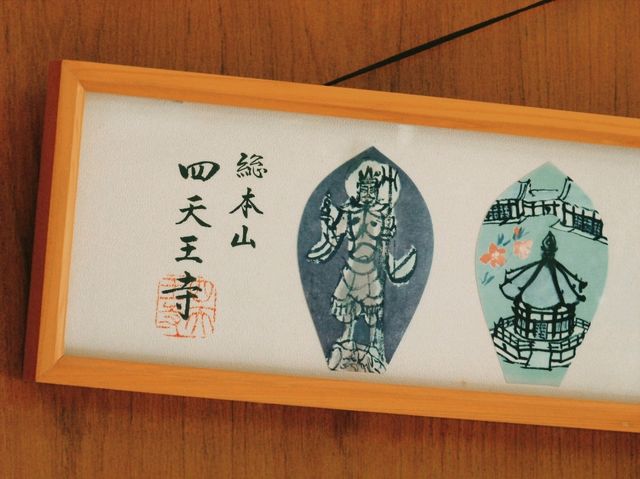 総本山
四天王寺